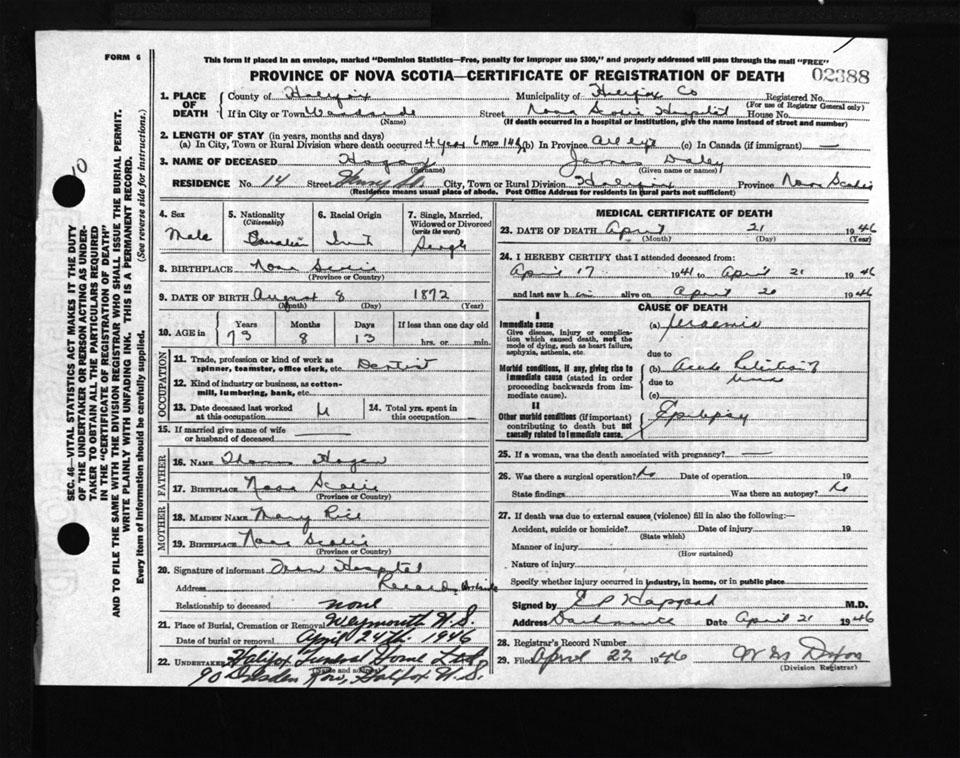 FORM 6
This form if placed in an envelope, marked "Dominion Statistics—Free, penalty for improper use $300," and properly addressed will pass through the mail "FREE"
PROVINCE OF NOVA SCOTIA—CERTIFICATE OF REGISTRATION OF DEATH
02388
10
SEC. 46—VITAL STATISTICS ACT MAKES IT THE DUTY
OF THE UNDERTAKER OR PERSON ACTING AS UNDER-
TAKER TO OBTAIN ALL THE PARTICULARS REQUIRED
IN THE "CERTIFICATE OF REGISTRATION OF DEATH"
AND TO FILE THE SAME WITH THE DIVISION REGISTRAR WHO SHALL ISSUE THE BURIAL PERMIT.
WRITE PLAINLY WITH UNFADING INK. THIS IS A PERMANENT RECORD.
Every item of Information should be carefully supplied. (See reverse side for instructions.)
1. PLACE OF DEATH
County of Halifax Municipality of Halifax Co Registered No.
(For use of Registrar General only)
If in City or Town Street Nova Scotia Hospital House No.
(Name) (If death occurred in a hospital or institution, give the name instead of street and number)
2. LENGTH OF STAY (in years, months and days)
(a) In City, Town or Rural Division where death occurred 4 years 6 mos (b) In Province All life (c) In Canada (if immigrant) —
3. NAME OF DECEASED Hogan James Daley
(Surname) (Given name or names)
RESIDENCE No. 14 Street City, Town or Rural Division Halifax Province Nova Scotia
(Residence means usual place of abode. Post Office Address for residents in rural parts not sufficient)
4. Sex
Male
5. Nationality
(Citizenship)
Canadian
6. Racial Origin
Irish
7. Single, Married, Widowed or Divorced
(write the word)
Single
8. BIRTHPLACE Nova Scotia
(Province or Country)
9. DATE OF BIRTH August 8 1872
(Month) (Day) (Year)
10. AGE in
Years Months Days If less than one day old
73 8 13 hrs. or min.
OCCUPATION
11. Trade, profession or kind of work as
spinner, teamster, office clerk, etc. Dentist
12. Kind of industry or business, as cotton-
mill, lumbering, bank, etc.
13. Date deceased last worked
at this occupation
14. Total yrs. spent in
this occupation
15. If married give name of wife
or husband of deceased —
FATHER
16. NAME Thomas Hogan
17. BIRTHPLACE Nova Scotia
(Province or Country)
MOTHER
18. MAIDEN NAME Mary Rice
19. BIRTHPLACE Nova Scotia
(Province or Country)
20. Signature of informant Hospital
Address Records
Relationship to deceased none
21. Place of Burial, Cremation or Removal Weymouth N.S.
Date of burial or removal April 24th 1946
22. UNDERTAKER Halifax Funeral Home Ltd
(Name and address)
90 Dresden Row, Halifax N.S.
MEDICAL CERTIFICATE OF DEATH
23. DATE OF DEATH April 21 1946
(Month) (Day) (Year)
24. I HEREBY CERTIFY that I attended deceased from:
April 17 1941 to April 21 1946
and last saw him alive on April 20 1946
CAUSE OF DEATH
I
Immediate cause
Give disease, injury or complica-
tion which caused death, not the
mode of dying, such as heart failure,
asphyxia, asthenia, etc.
(a) Uraemia
due to
Morbid conditions, if any, giving rise to
immediate cause (stated in order
proceeding backwards from im-
mediate cause).
(b) Acute Retention of
due to Urine
(c)
II
Other morbid conditions (if important)
contributing to death but not
causally related to immediate cause.
Epilepsy
25. If a woman, was the death associated with pregnancy? —
26. Was there a surgical operation? No Date of operation 19
State findings Was there an autopsy? No
27. If death was due to external causes (violence) fill in also the following:—
Accident, suicide or homicide? Date of injury 19
(State which)
Manner of injury
(How sustained)
Nature of injury
Specify whether injury occurred in industry, in home, or in public place
Signed by M.D.
Address Dartmouth Date April 21 1946
28. Registrar's Record Number
29. Filed April 22 1946
(Division Registrar)